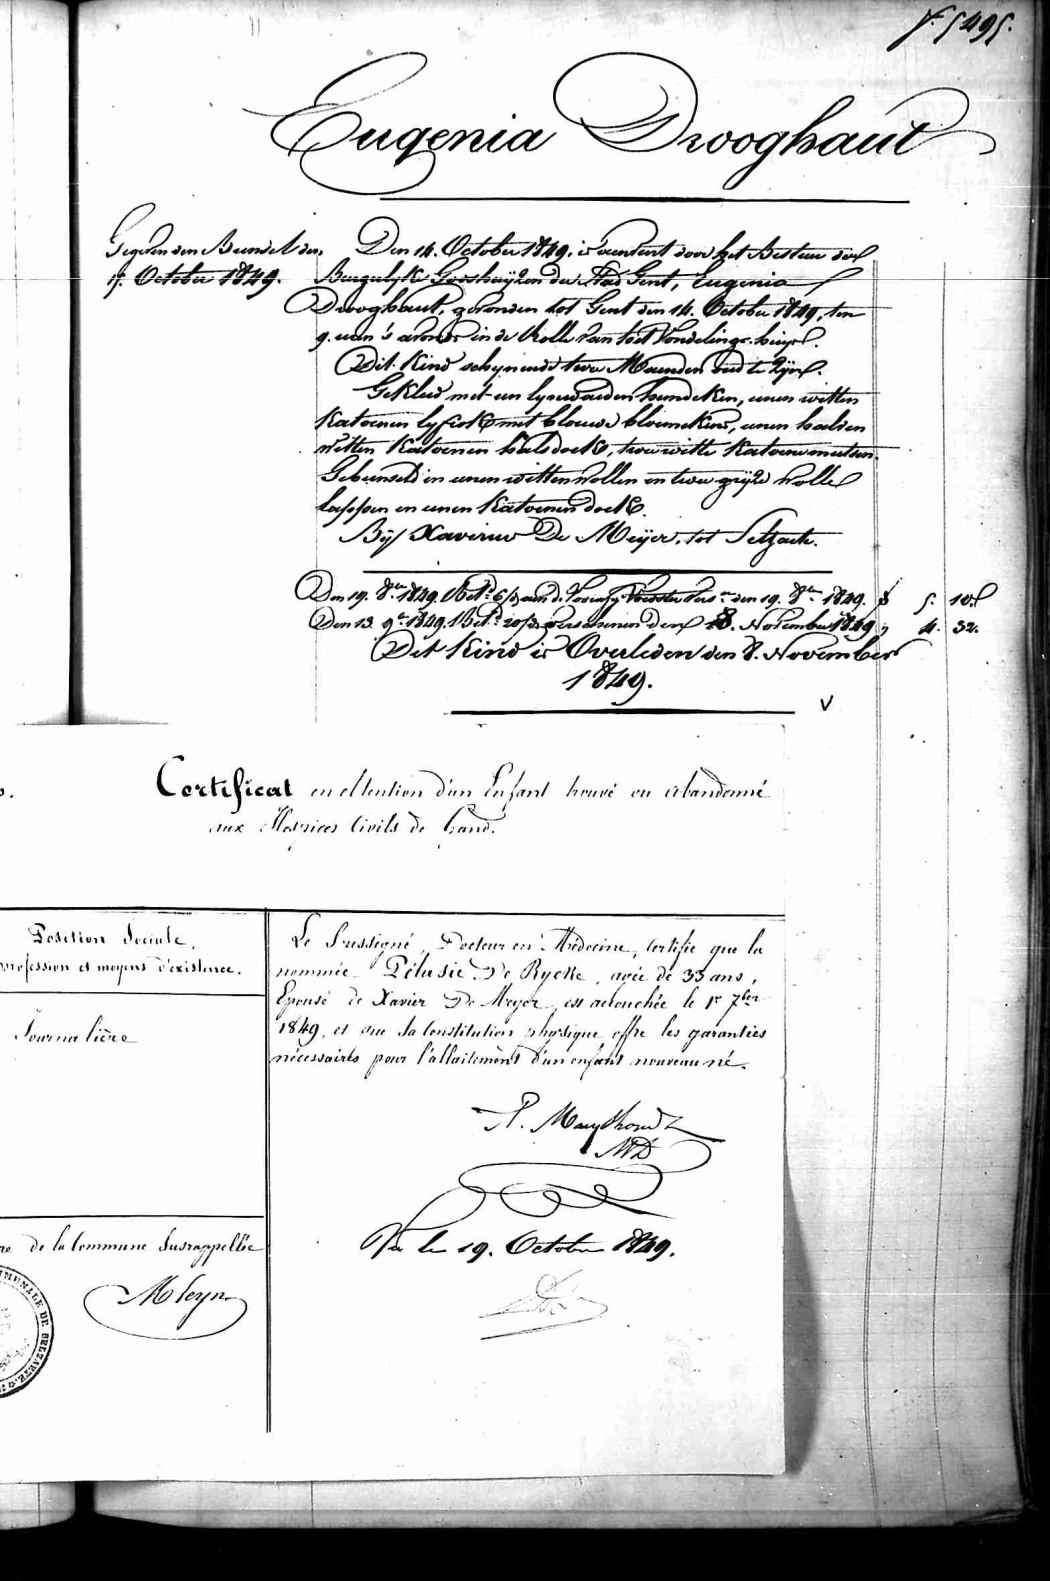 f. 5495.
Eugenia Drooghaut
Gegeven den Bundel den
17. October 1849.
Den 14. October 1849, is aenveerd door het Bestuer der
Burgerlyke Godshuijzen der Stad Gent, Eugenia
Drooghaut, gevonden tot Gent den 14. October 1849, ten
9. uren 's avonds in de Rolle van het Vondelings-huijs.
Dit Kind schynende twee Maenden oud te zyn.
Gekleed met een lynwaeden hemdeken, eenen witten
Katoenen lyfrok met blauwe bloemekens, eenen halven
witten Katoenen halsdoek, twee witte Katoene mutsen.
Gebunseld in eenen witten wollen en twee gryze wolle
lappen en eenen Katoenen doek.
Bij Xaverius De Meijer, tot Setzaete.
Den 19. 8ber 1849. Bet. 6/3 aen den 19. 8ber 1849. 5. 10.
Den 13. 9ber 1849. Bet. 20/3 den 8. November 1849 4. 32.
Dit Kind is Overleden den 8. November
1849.
V
Certificat en obtention d'un Enfant trouvé ou abandonné
aux Hospices Civils de Gand.
Position Sociale,
profession et moyens d'existence.
Journalière
Le Sussigné, Docteur en Médecine, Certifie que la
nommée Pélasie De Rycke, agée de 33 ans,
Epouse de Xavier De Meyer, est accouchée le 1r 7ber
1849, et que sa Constitution physique offre les garanties
nécessaires pour l'allaitement d'un enfant nouveau né.
MD
de la Commune Susrappellée
Vu le 19. October 1849.